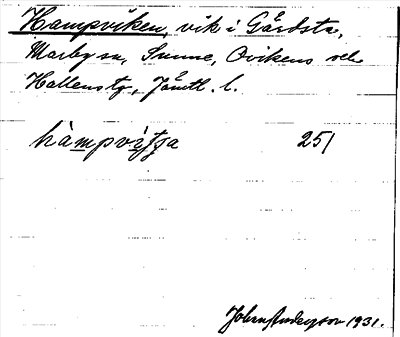 Hampviken, vik i Gärdsta,
Marby sn, Sunne, Ovikens och
Hallens tg, Jämtl. l.
hàmpvitja 251
John Anderson 1931.